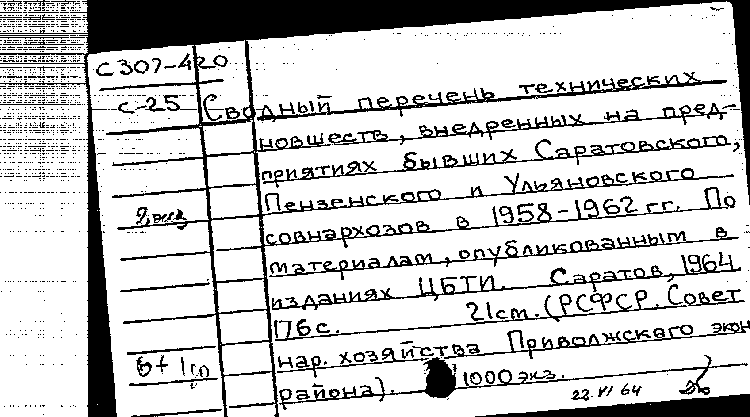 С307-420
С-25 Сводный перечень технических
новшеств, внедренных на пред-
приятиях бывших Саратовского,
Пензенского и Ульяновского
совнархозов в 1958-1962 гг. По
материалам, опубликованным в
изданиях ЦБТИ. Саратов, 1964
176 с. 21см. (РСФСР. Совет
нар. хозяйства Приволжского экон
района). 1000 экз.
22.VI 64